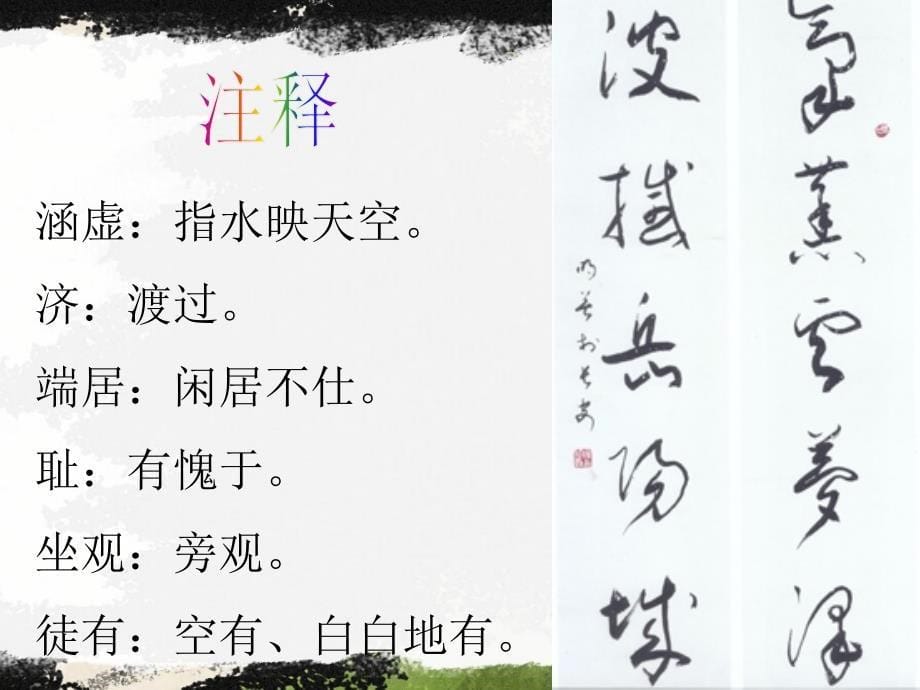 注释
涵虚：指水映天空。
济：渡过。
端居：闲居不仕。
耻：有愧于。
坐观：旁观。
徒有：空有、白白地有。
氣蒸雲夢澤
波撼岳陽城